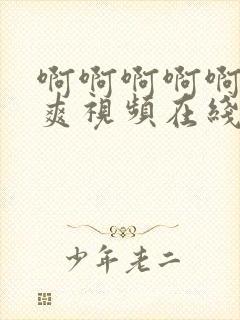 啊啊啊啊啊
爽視頻在綫
少年老二